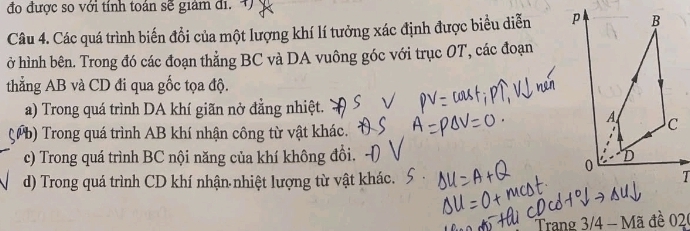 đo được so với tính toán sẽ giảm đi.
Câu 4. Các quá trình biến đổi của một lượng khí lí tưởng xác định được biểu diễn
ở hình bên. Trong đó các đoạn thẳng BC và DA vuông góc với trục OT, các đoạn
thẳng AB và CD đi qua gốc tọa độ.
a) Trong quá trình DA khí giãn nở đẳng nhiệt. S V PV = const; P↑, V↓ nén
b) Trong quá trình AB khí nhận công từ vật khác. S A = PΔV = 0.
c) Trong quá trình BC nội năng của khí không đổi. Đ V
V d) Trong quá trình CD khí nhận nhiệt lượng từ vật khác. S. ΔU = A + Q
ΔU = 0 + mcΔt.
thì CD có t°↓ → ΔU↓
Trang 3/4 – Mã đề 020
P
B
A
C
D
0
T